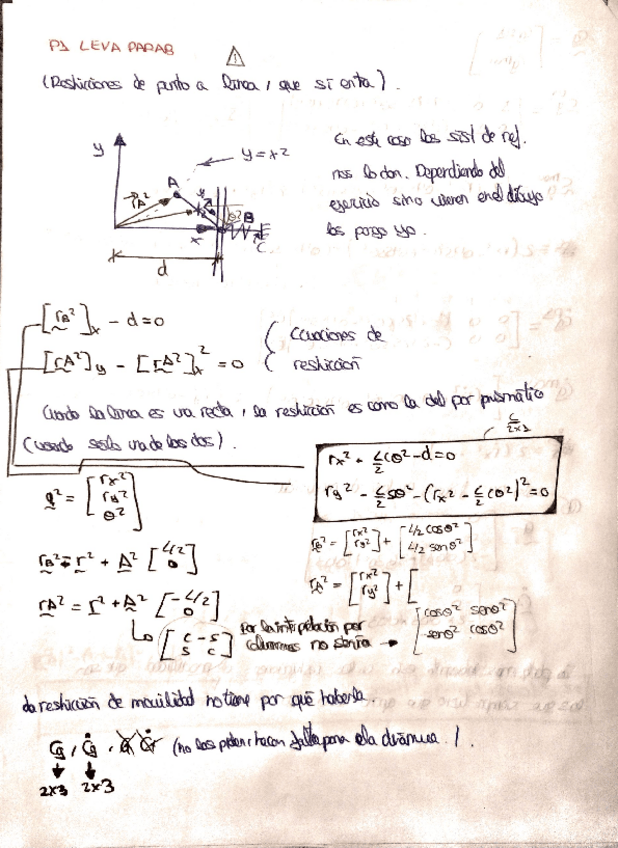 P1 LEVA PARAB
1
(Restricciones de punto a línea, que sí entra).
En este caso los sist de ref.
nos lo dan. Dependiendo del
ejercicio si no vienen en el dibujo
los pongo yo.
y
y = x²
A
r_A²
B
x
C
d
[r_B²]_x - d = 0
[r_A²]_y - [r_A²]_x² = 0
Ecuaciones de
restricción
Cuando la línea es una recta, la restricción es como la del par prismático
(usando solo una de las dos).
r_x² + L/2 cθ² - d = 0
r_y² - L/2 sθ² - (r_x² - L/2 cθ²)² = 0
q² = [r_x² r_y² θ²]
r_B² = r² + A² [L/2 0]
r_B² = [r_x² r_y²] + [L/2 cosθ² L/2 senθ²]
r_A² = r² + A² [-L/2 0]
r_A² = [r_x² r_y²] + [
[c -s s c]
por la interpretación por
columnas no sería →
[cosθ² senθ² -senθ² cosθ²]
La restricción de movilidad no tiene por qué haberla.
(no los piden, hacen falta para la dinámica).
2x3 2x3